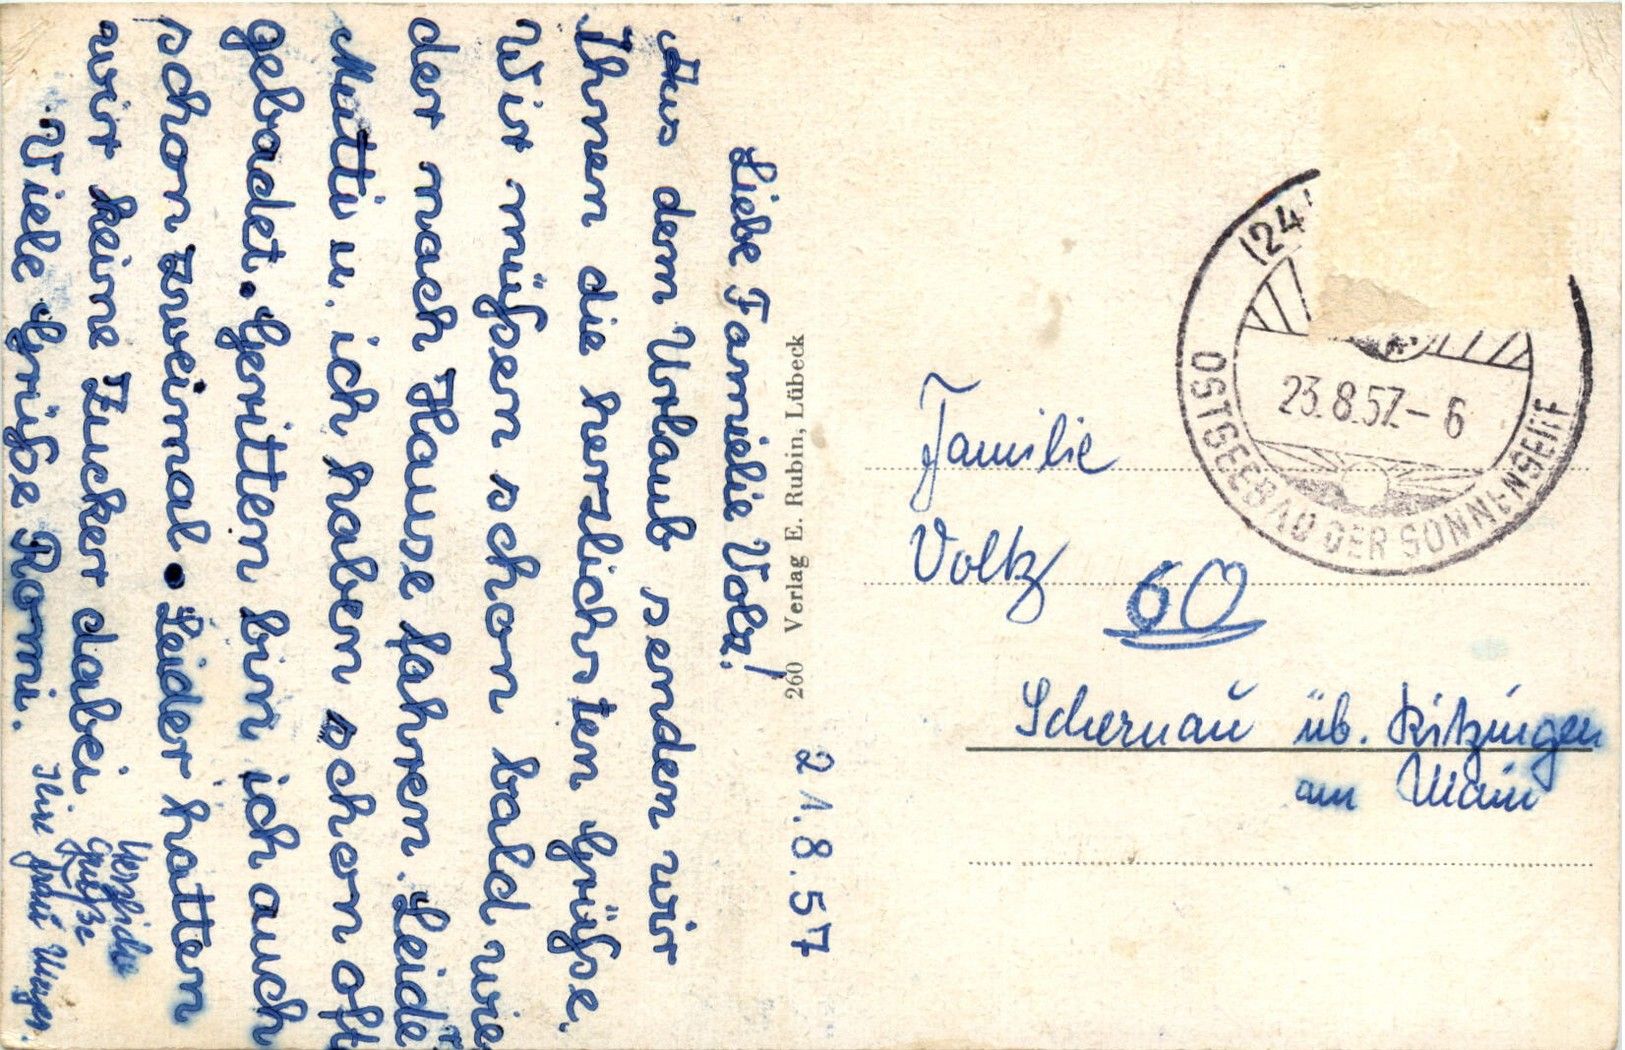 21.8.57
Liebe Familie Volz!
Aus dem Urlaub senden wir
Ihnen die herzlichsten Grüße.
Wir müßen schon bald wie
der nach Hause fahren. Leider
Mutti u. ich haben schon oft
gebadet. Geritten bin ich auch
schon zweimal. Leider hatten
wir keine Zucker dabei
Viele Grüße Romi.
Herzliche
Grüße
Ihre Frau
260 Verlag E. Rubin, Lübeck
(24
23.8.57.-6
OSTSEEBAD DER SONNENSEITE
Familie
Voltz
60
Schernau üb. Kitzingen
am Main